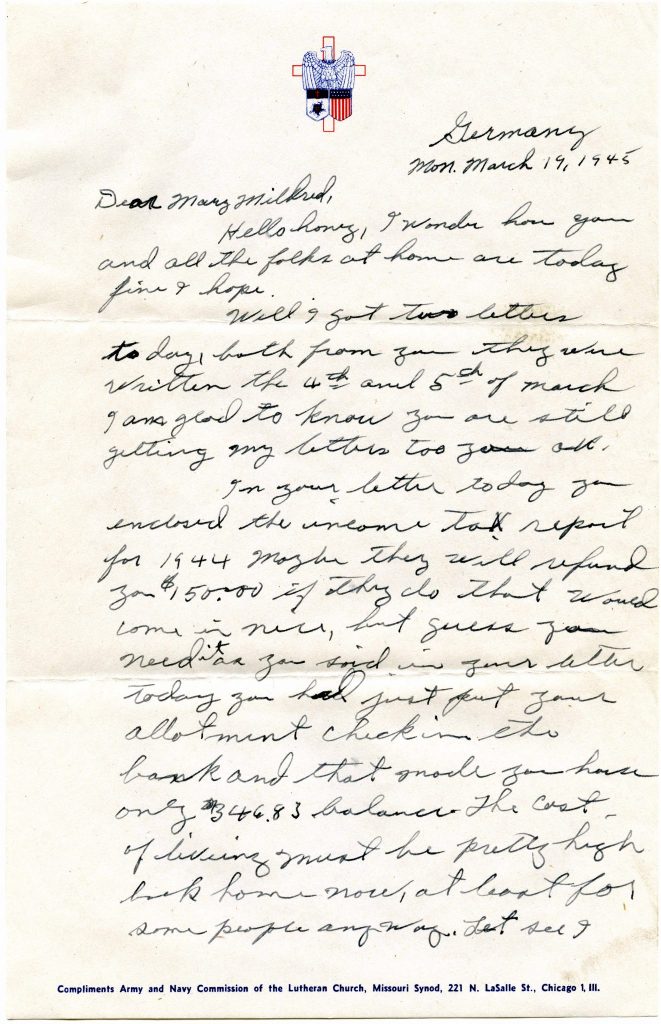 Germany
Mon. March 19, 1945
Dear Mary Mildred,
Hello honey, I wonder how you
and all the folks at home are today
fine I hope.
Well I got two letters
today, both from you they were
written the 4th and 5th of march
I am glad to know you are still
getting my letters too
In your letter today you
enclosed the income tax report
for 1944 Maybe they will refund
you $150.00 if they do that would
come in nice, but guess you
need it as you said in your letter
today you had just put your
allotment check in the
bank and that made you have
only $346.83 balance The cost
of living must be pretty high
back home now, at least for
some people anyway. Let see I
Compliments Army and Navy Commission of the Lutheran Church, Missouri Synod, 221 N. LaSalle St., Chicago 1, Ill.